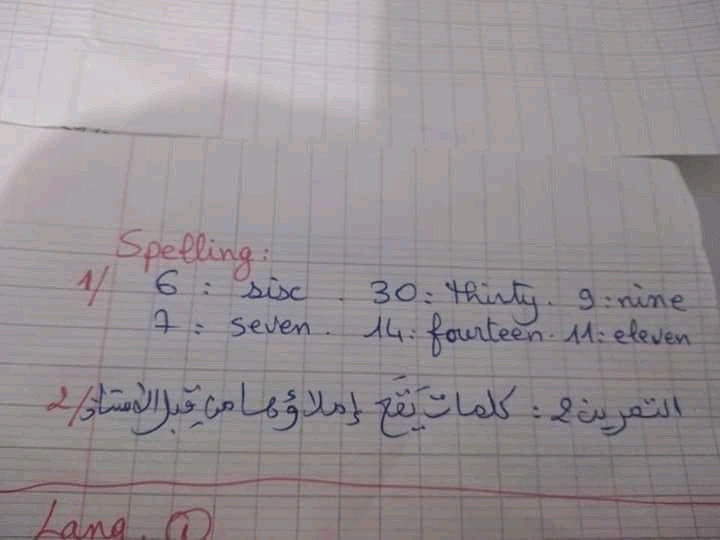 Spelling:
1/ 6 : six . 30 : thirty . 9 : nine
7 : seven . 14 : fourteen . 11 : eleven
2/ التمرين 2 : كلمات يَقع إملاؤها من قبل الأستاذ
Lang. 1